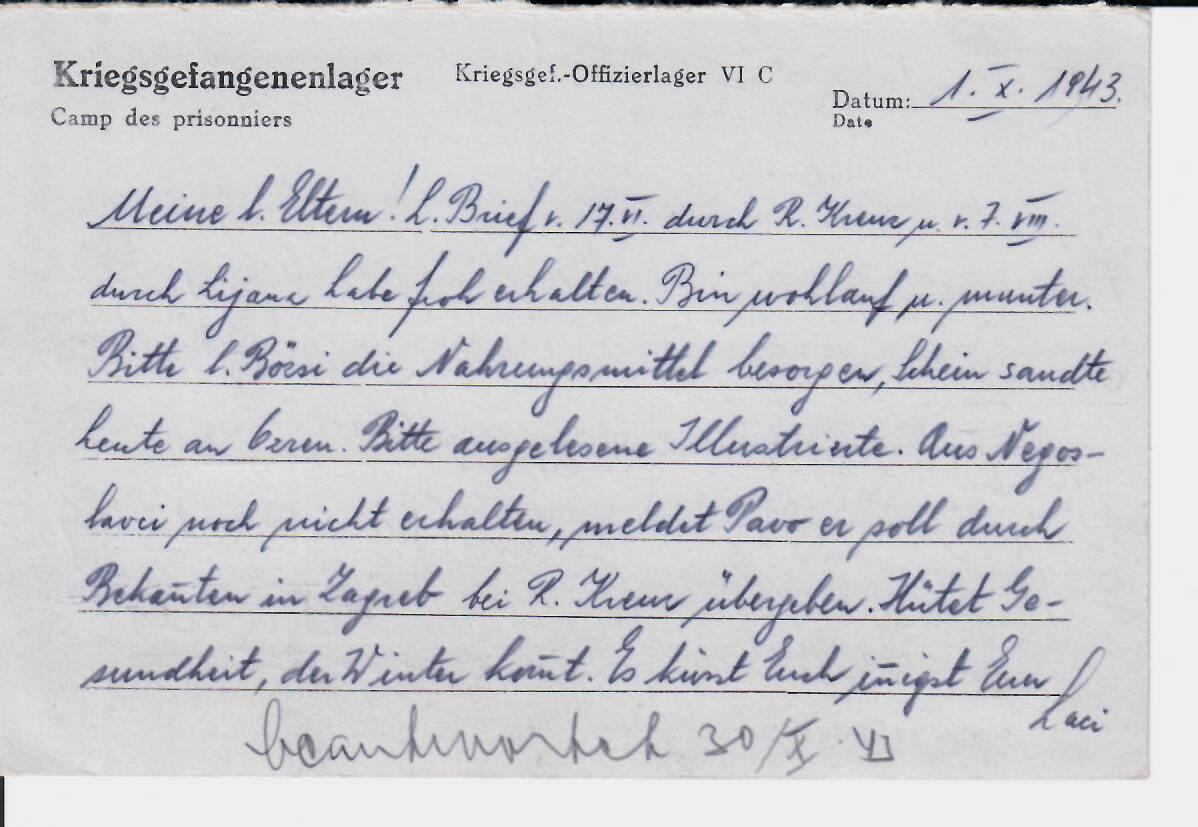 Kriegsgefangenenlager
Camp des prisonniers
Kriegsgef.-Offizierlager VI C
Datum: 1. X. 1943.
Date
Meine l. Eltern! L. Brief v. 17. VI. durch R. Kreuz u. v. 7. VIII.
durch Lijana habe froh erhalten. Bin wohlauf u. munter.
Bitte l. Börsi die Nahrungsmittel besorgen, Schein sandte
heute an Ozren. Bitte ausgelesene Illustrierte. Aus Negos-
lavci noch nicht erhalten, meldet Pavo er soll durch
Bekan̄ten in Zagreb bei R. Kreuz übergeben. Hütet Ge-
sundheit, der Winter kom̄t. Es küsst Euch in̄igst Euer
Laci
beantwortet 30/X. 43